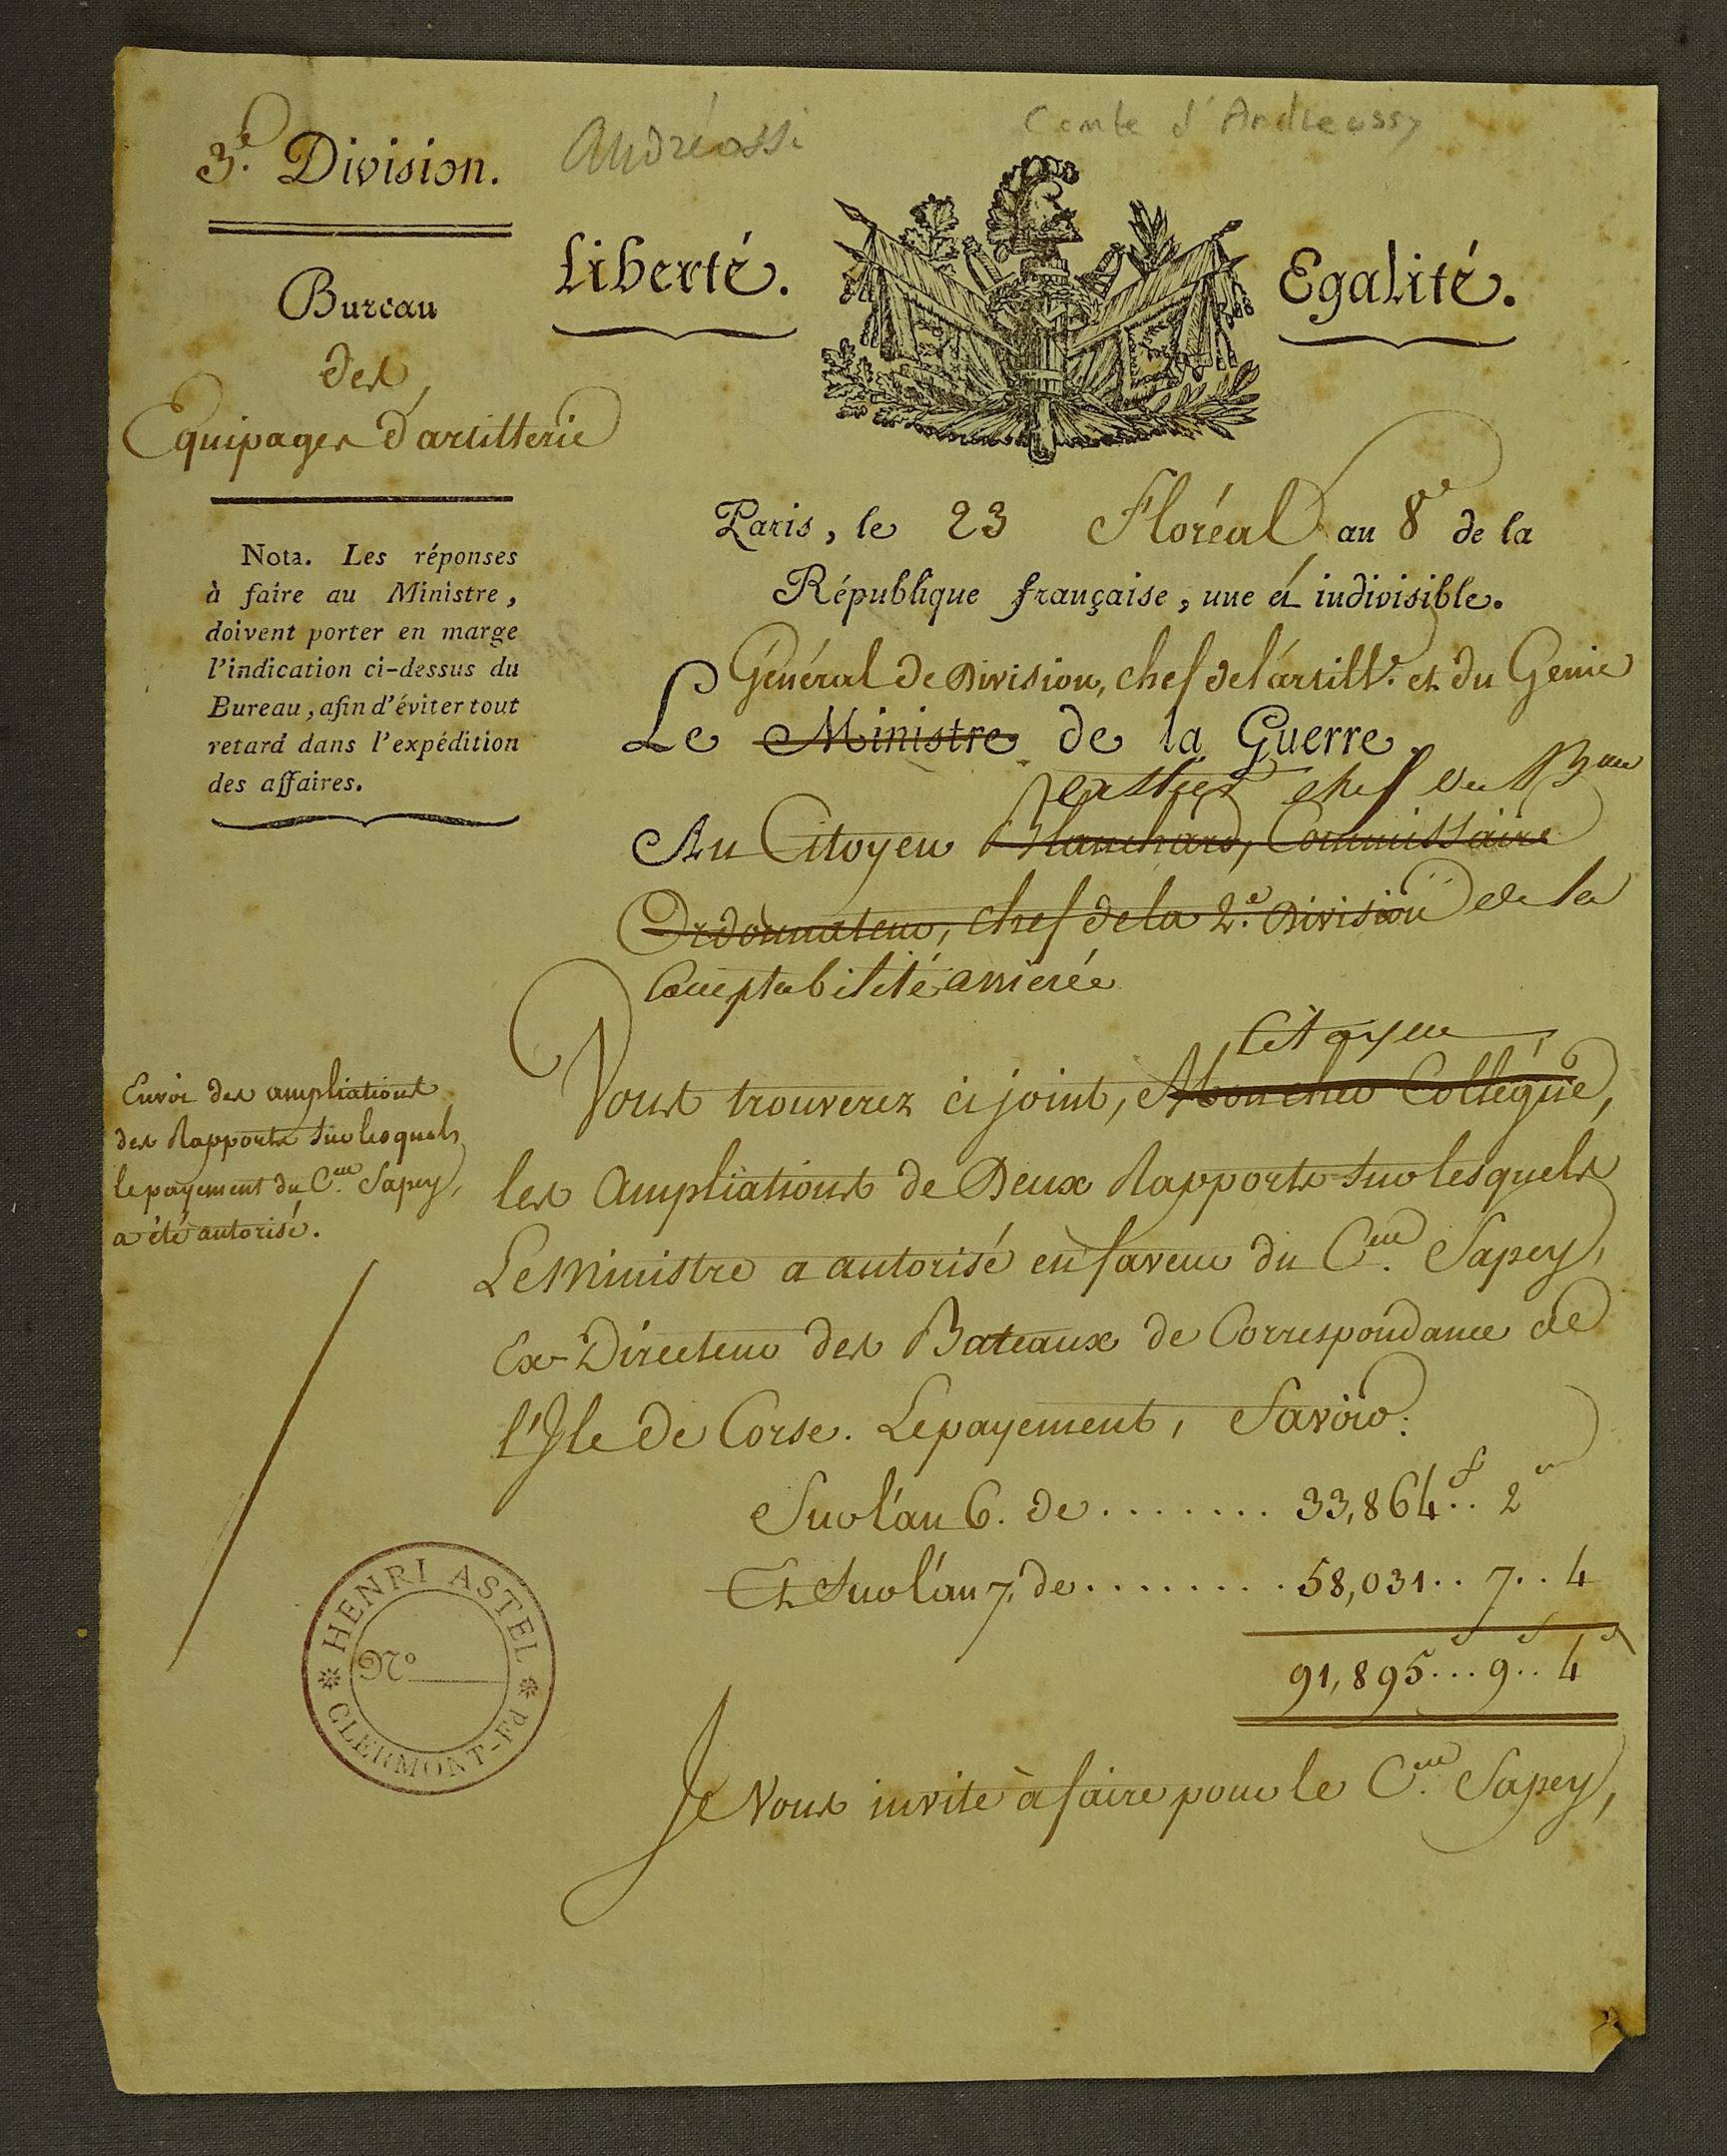 3.e Division.
Andréossi
Comte d'Andreossy
Liberté.
Egalité.
Bureau
des
Equipages d'artillerie
Nota. Les réponses
à faire au Ministre,
doivent porter en marge
l'indication ci-dessus du
Bureau, afin d'éviter tout
retard dans l'expédition
des affaires.
Paris, le 23 Floréal an 8e de la
République française, une et indivisible.
Général de Division, chef de l'artill.e et du Genie
Le Ministre de la Guerre,
chef du Bau
Au Citoyen Blanchard, Commissaire
Ordonnateur, chef de la 2.e Division de la
Comptabilité arrierée
Citoyen
Vous trouverez ci joint, Mon cher Collégue,
les Ampliations de Deux Rapports sur lesquels
Le Ministre a autorisé en faveur du C.en Sapey,
Ex-Directeur des Bateaux de Correspondance de
l'Isle de Corse. Le payement, Savoir:
Sur l'an 6. de ........ 33,864f.. 2
Et Sur l'an 7. de ......... 58,031.. 7.. 4
91,895... 9.. 4
Je Vous invite à faire pour le C.en Sapey,
Envoi des ampliations
des Rapports sur lesquels
le payement du C.en Sapey,
a été autorisé.
HENRI ASTEL
No
CLERMONT-Fd